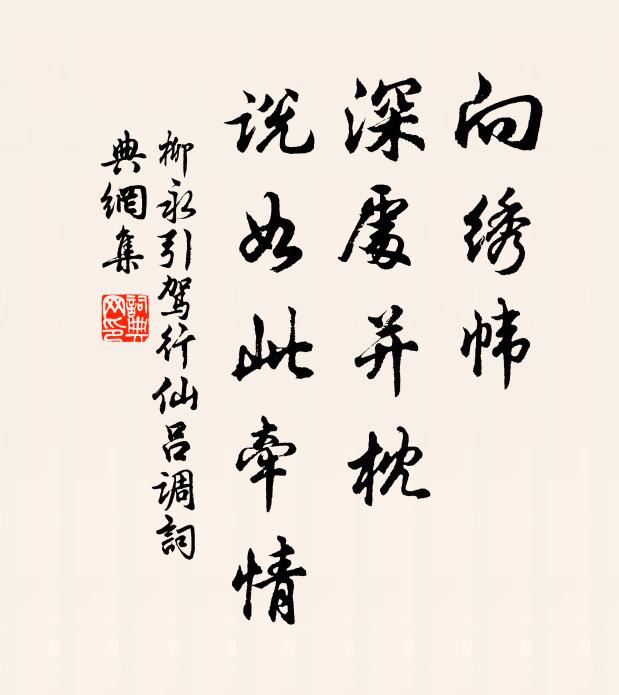 向绣帏
深處并枕
说如此牵情
柳永引驾行仙吕调詞
典網集
詞典
网印